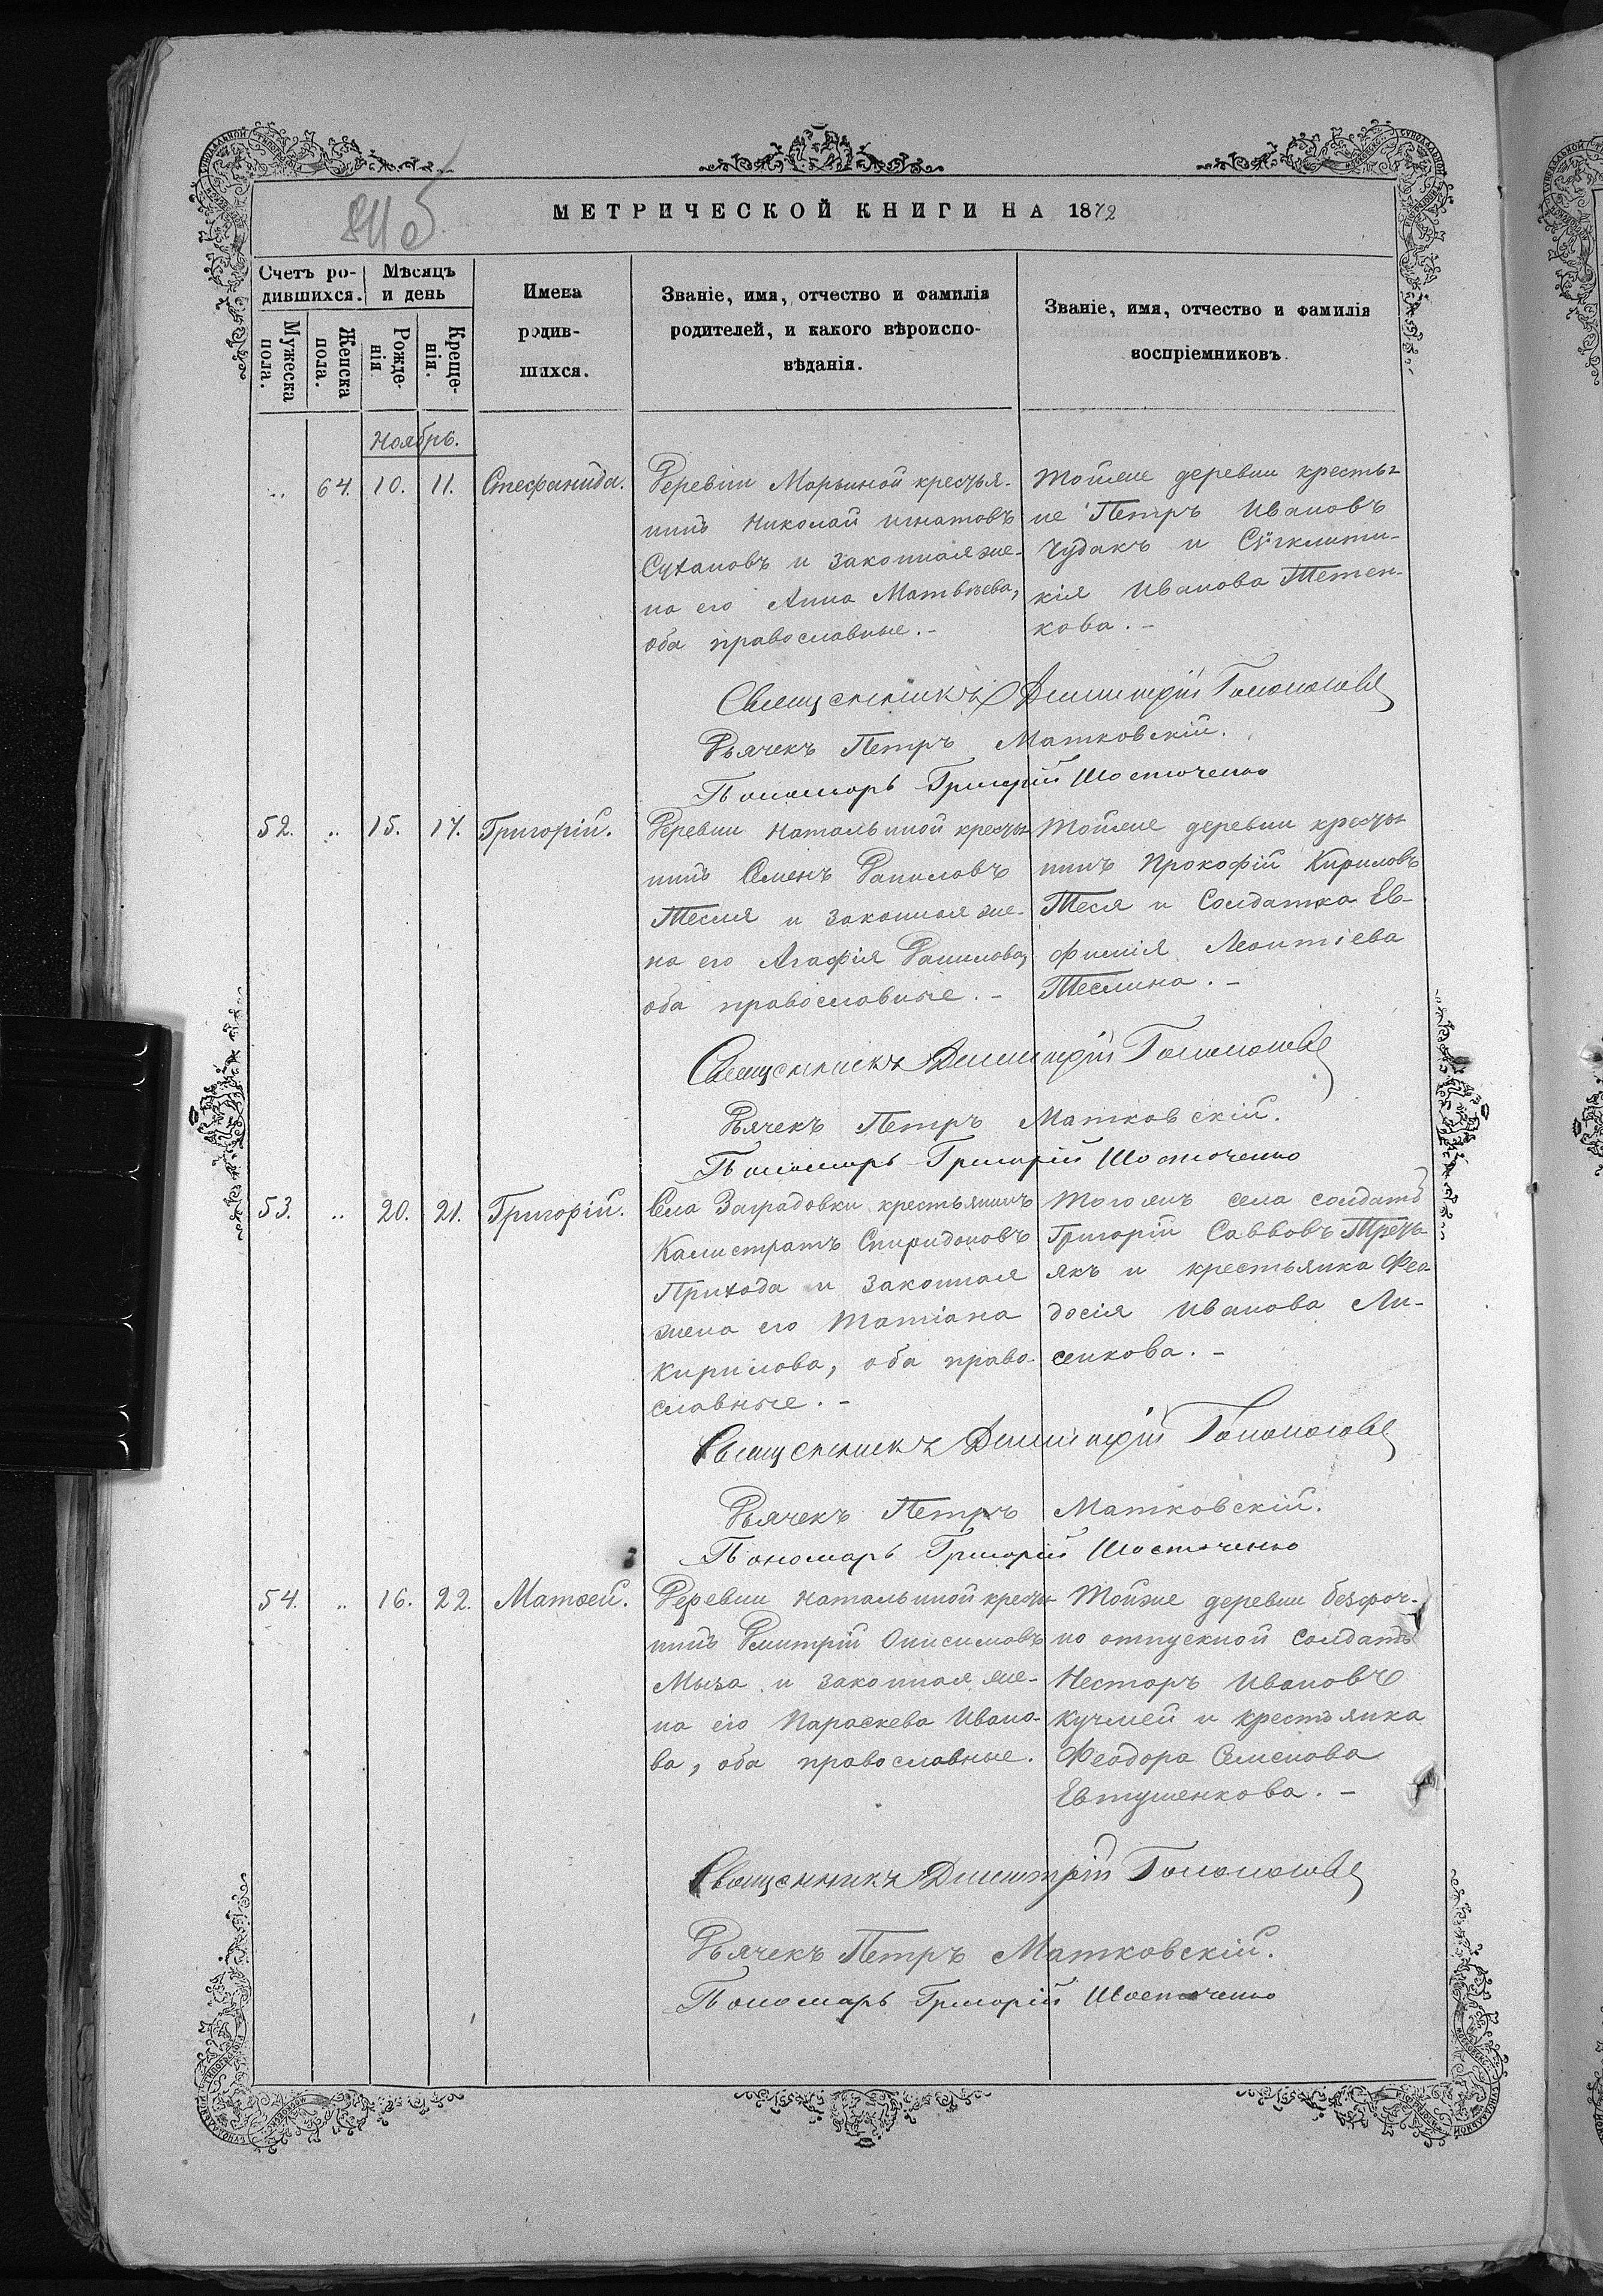 811 об
МЕТРИЧЕСКОЙ КНИГИ НА 1872
Счетъ ро-
дившихся.
Мѣсяцъ
и день
Мужеска
пола.
Женска
пола.
Рожде-
нія
Креще-
нія.
Имена
родив-
шихся.
Званіе, имя, отчество и фамилія
родителей, и какого вѣроиспо-
вѣданія.
Званіе, имя, отчество и фамилія
воспріемниковъ.
Ноябрь.
.. 64. 10. 11. Стефанида.
Деревни Марьиной крестья-
нинъ Николай Игнатовъ
Сухановъ и законная же-
на его Анна Матвѣева,
оба православные. -
Тойже деревни крестья-
не Петръ Ивановъ
Чудакъ и Сѵнклити-
кія Иванова Тетен-
кова. -
Священникъ Димитрій
Дьячекъ Петръ Матковскій.
Пономарь Григорій Шосточенко
52. .. 15. 17. Григорій.
Деревни Натальиной крестья-
нинъ Семенъ Даниловъ
Тесля и законная же-
на его Агафія Данилова,
оба православные. -
Тойже деревни крестья-
нинъ Прокофій Кириловъ
Тесля и Солдатка Ев-
фимія Леонтіева
Теслина. -
Священникъ Димитрій
Дьячекъ Петръ Матковскій.
Пономарь Григорій Шосточенко
53. .. 20. 21. Григорій.
Села Заградовки крестьянинъ
Калистратъ Спиридоновъ
Прихода и законная
жена его Татіана
Кирилова, оба право-
славные. -
Тогожъ села солдатъ
Григорій Саввовъ Треть-
якъ и крестьянка Фео-
досія Иванова Ли-
сенкова. -
Священникъ Димитрій
Дьячекъ Петръ Матковскій.
Пономарь Григорій Шосточенко
54. .. 16. 22. Матѳей.
Деревни Натальиной крестья-
нинъ Дмитрій Онисимовъ
Мыза и законная же-
на его Параскева Ивано-
ва, оба православные.
Тойже деревни безсроч-
но отпускной солдатъ
Несторъ Ивановъ
Кучмей и крестьянка
Феодора Семенова
Евтушенкова. -
Священникъ Димитрій
Дьячекъ Петръ Матковскій.
Пономарь Григорій Шосточенко